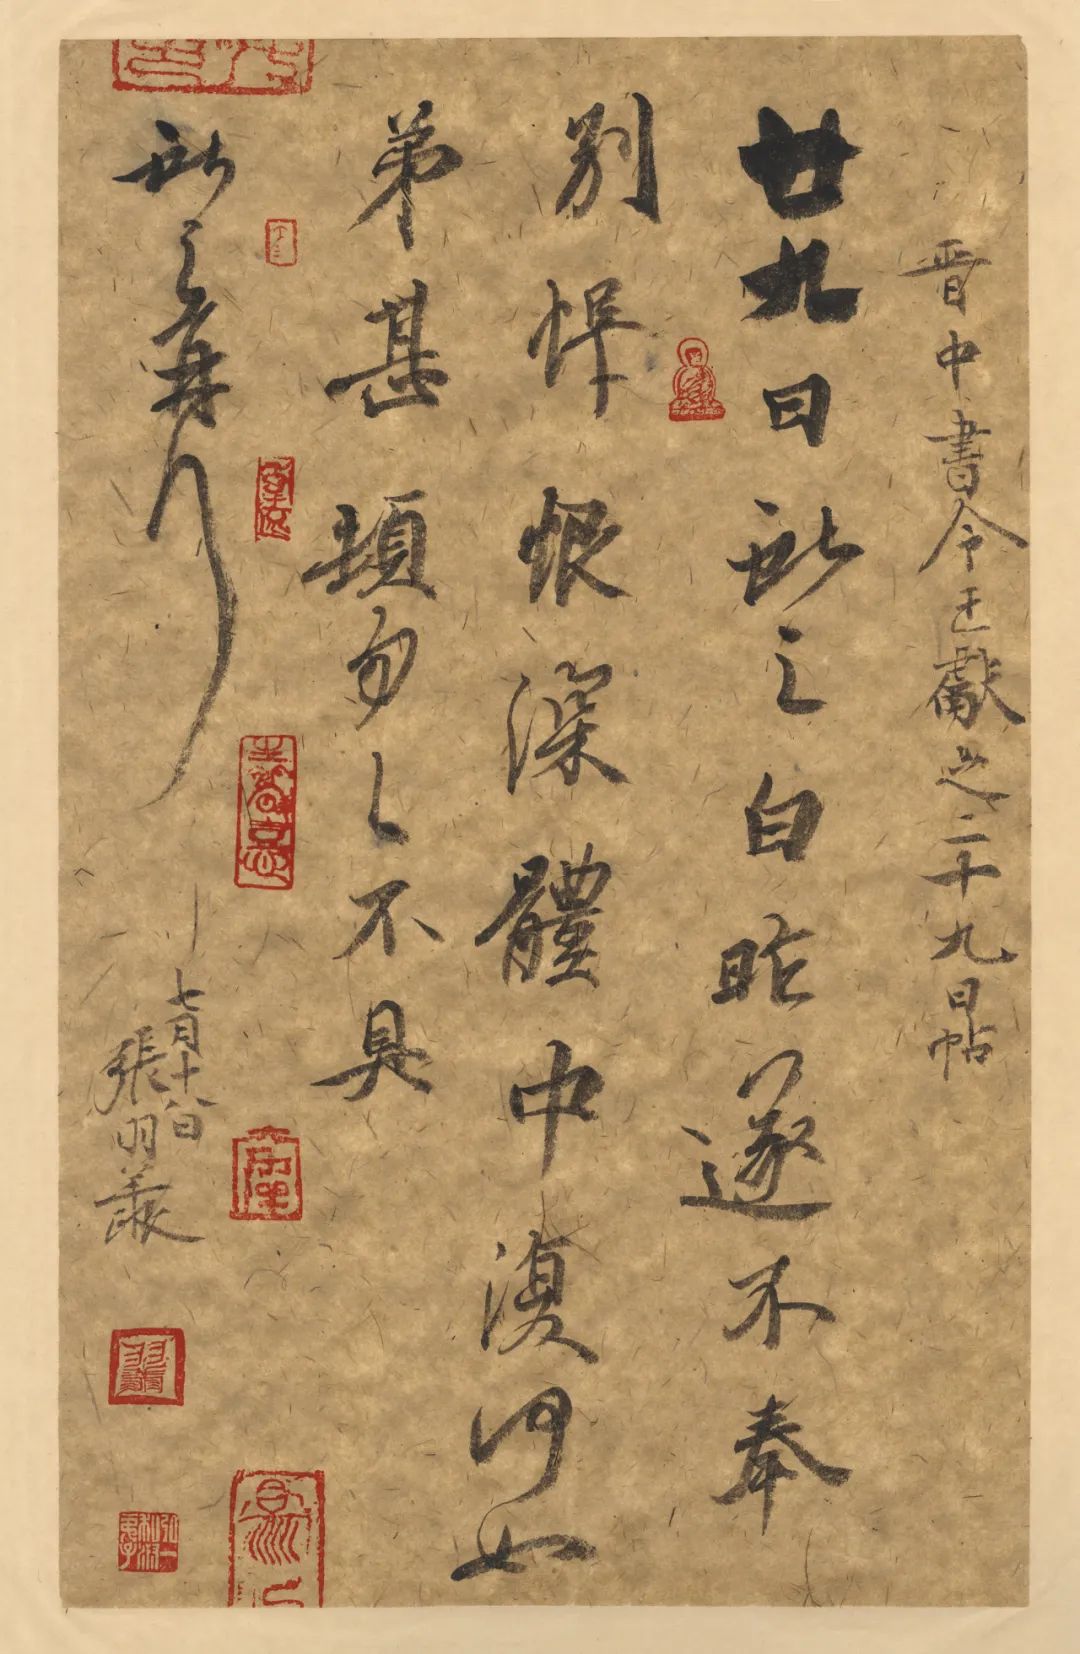 晋中書令王獻之二十九日帖
廿九日獻之白昨遂不奉
別悵恨深體中復何如
弟甚頓勿々不具
獻之再拜
七月十八日
張羽